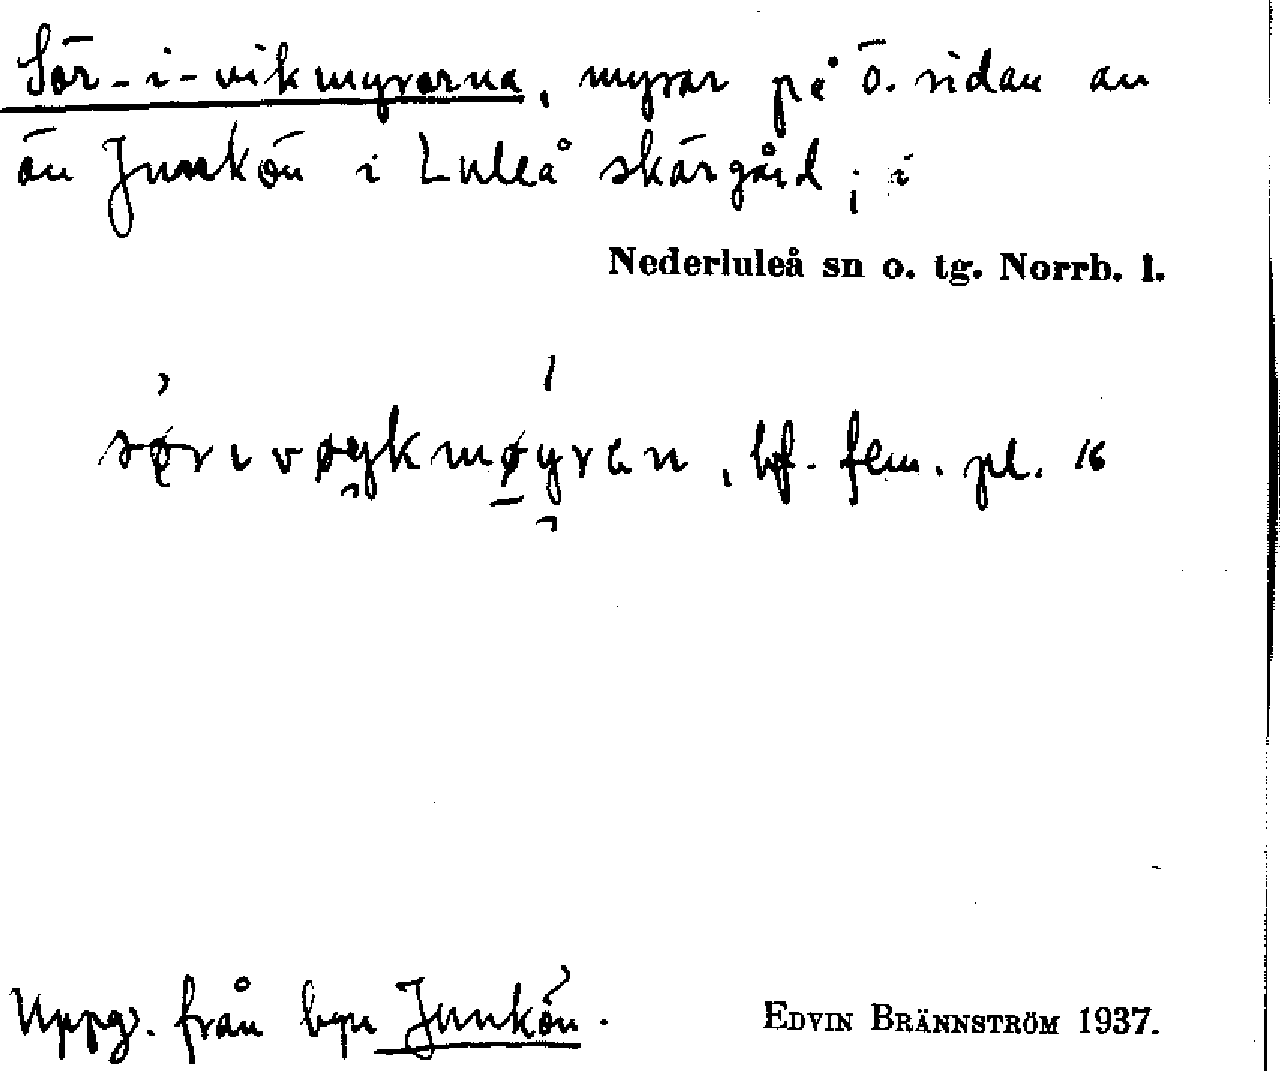 Sör-i-vikmyrarna, myrar på ö. sidan av
ön Junkön i Luleå skärgård; i
Nederluleå sn o. tg. Norrb. l.
sørıvøykmøyran, bf. fem. pl. 16
Uppg. från byn Junkön.
EDVIN BRÄNNSTRÖM 1937.